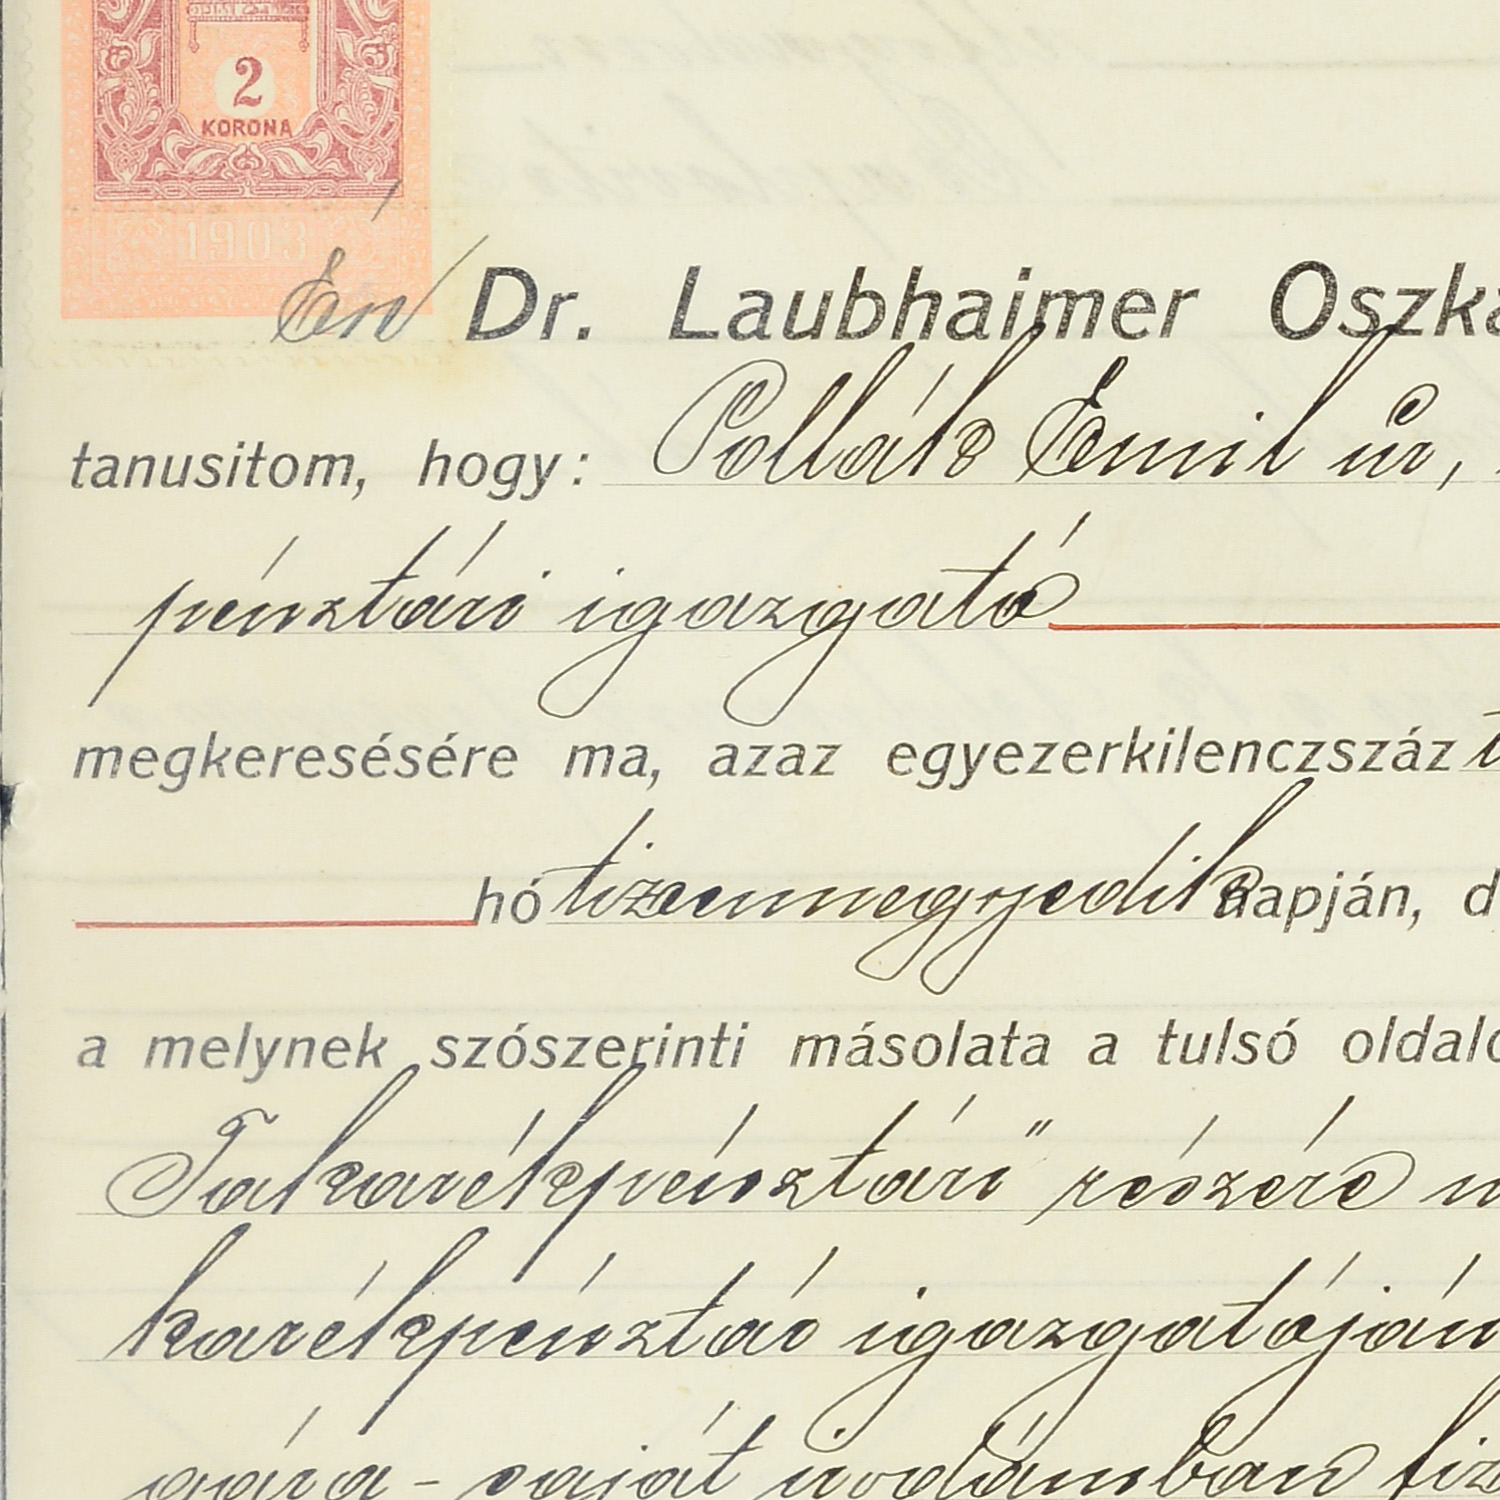 2
KORONA
1903
Én Dr. Laubhaimer Oszká
tanusitom, hogy: Pollák Emil úr,
pénztári igazgató
megkeresésére ma, azaz egyezerkilenczszáz t
hó tizennegyedik napján, d
a melynek szószerinti másolata a tulsó oldalo
Takarékpénztári" részére
karékpénztár igazgatóján
gára - saját irodámban tiz